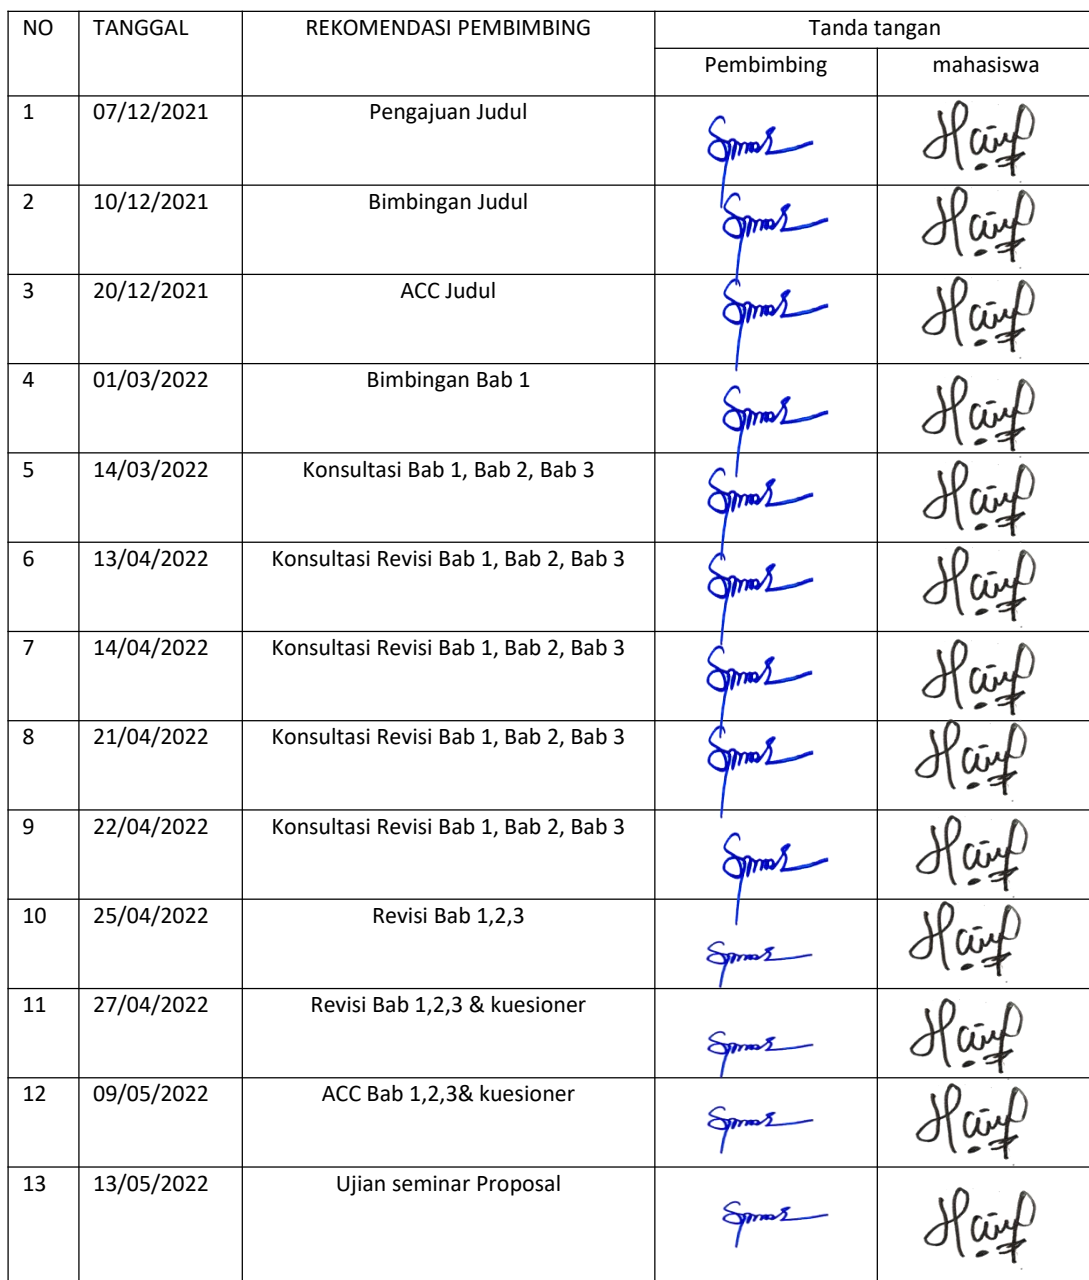 NO TANGGAL REKOMENDASI PEMBIMBING Tanda tangan
Pembimbing mahasiswa
1 07/12/2021 Pengajuan Judul
2 10/12/2021 Bimbingan Judul
3 20/12/2021 ACC Judul
4 01/03/2022 Bimbingan Bab 1
5 14/03/2022 Konsultasi Bab 1, Bab 2, Bab 3
6 13/04/2022 Konsultasi Revisi Bab 1, Bab 2, Bab 3
7 14/04/2022 Konsultasi Revisi Bab 1, Bab 2, Bab 3
8 21/04/2022 Konsultasi Revisi Bab 1, Bab 2, Bab 3
9 22/04/2022 Konsultasi Revisi Bab 1, Bab 2, Bab 3
10 25/04/2022 Revisi Bab 1,2,3
11 27/04/2022 Revisi Bab 1,2,3 & kuesioner
12 09/05/2022 ACC Bab 1,2,3& kuesioner
13 13/05/2022 Ujian seminar Proposal